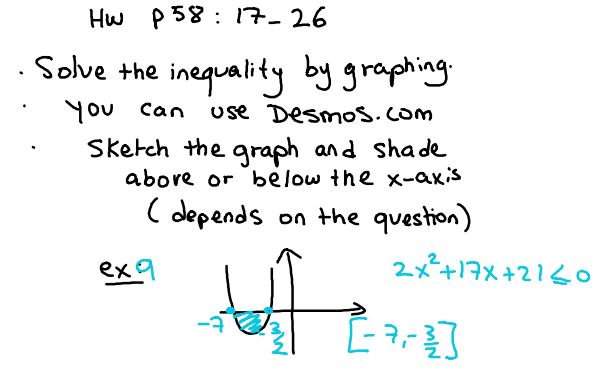 HW p58: 17-26
· Solve the inequality by graphing.
· you can use Desmos.com
· Sketch the graph and shade
above or below the x-axis
(depends on the question)
ex 9
2x²+17x+21≤0
-7
-3/2
[-7,-3/2]